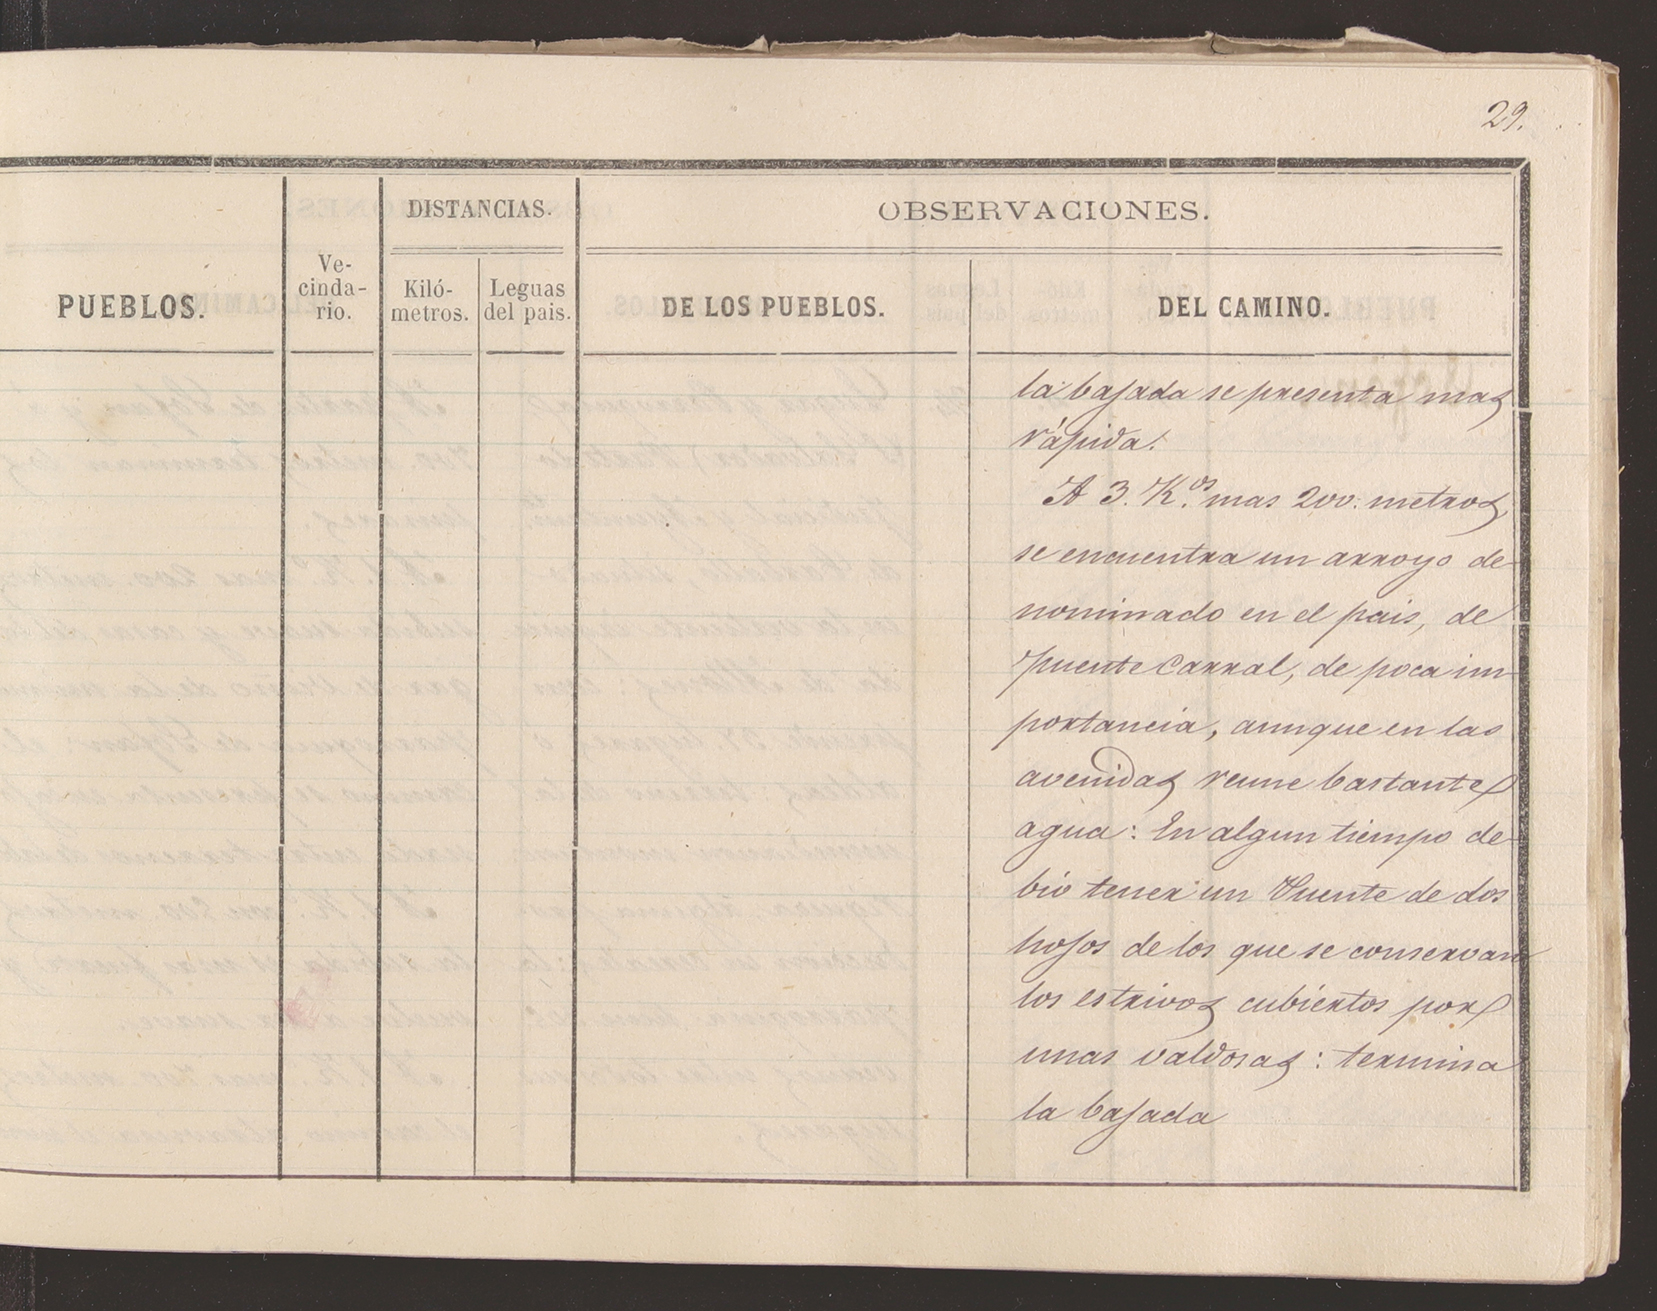 29.
PUEBLOS.
Ve-
cinda-
rio.
DISTANCIAS.
Kiló-
metros.
Leguas
del pais.
OBSERVACIONES.
DE LOS PUEBLOS.
DEL CAMINO.
la bajada se presenta mas
rápida.
A 3. K.os mas 200. metros
se encuentra un arroyo de-
nominado en el pais, de
Puente Carral, de poca im-
portancia, aunque en las
avenidas reune bastante
agua: En algun tiempo de-
bió tener un Puente de dos
hojos de los que se conservan
los estrivos cubiertos por
unas valdosas: termina
la bajada